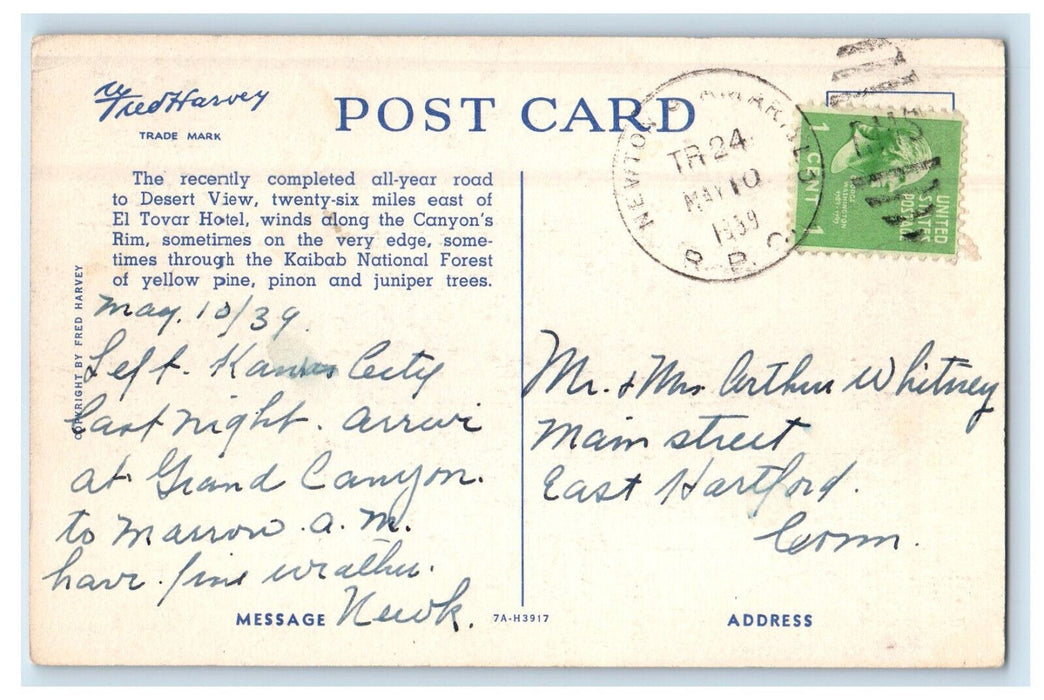 Fred Harvey
TRADE MARK
POST CARD
The recently completed all-year road
to Desert View, twenty-six miles east of
El Tovar Hotel, winds along the Canyon's
Rim, sometimes on the very edge, some-
times through the Kaibab National Forest
of yellow pine, pinon and juniper trees.
COPYRIGHT BY FRED HARVEY
May. 10/39.
Left. Kansas City
Last night. arrive
at Grand Canyon.
to Marrow. a.m.
have. fine weather.
Newk.
MESSAGE
7A-H3917
NEWTON
TR 24
MAY 10
1939
R. P. O.
1 CENT 1
GEORGE
WASHINGTON
UNITED
STATES
POSTAGE
Mr. & Mrs Arthur Whitney
Main street
East Hartford.
Conn.
ADDRESS